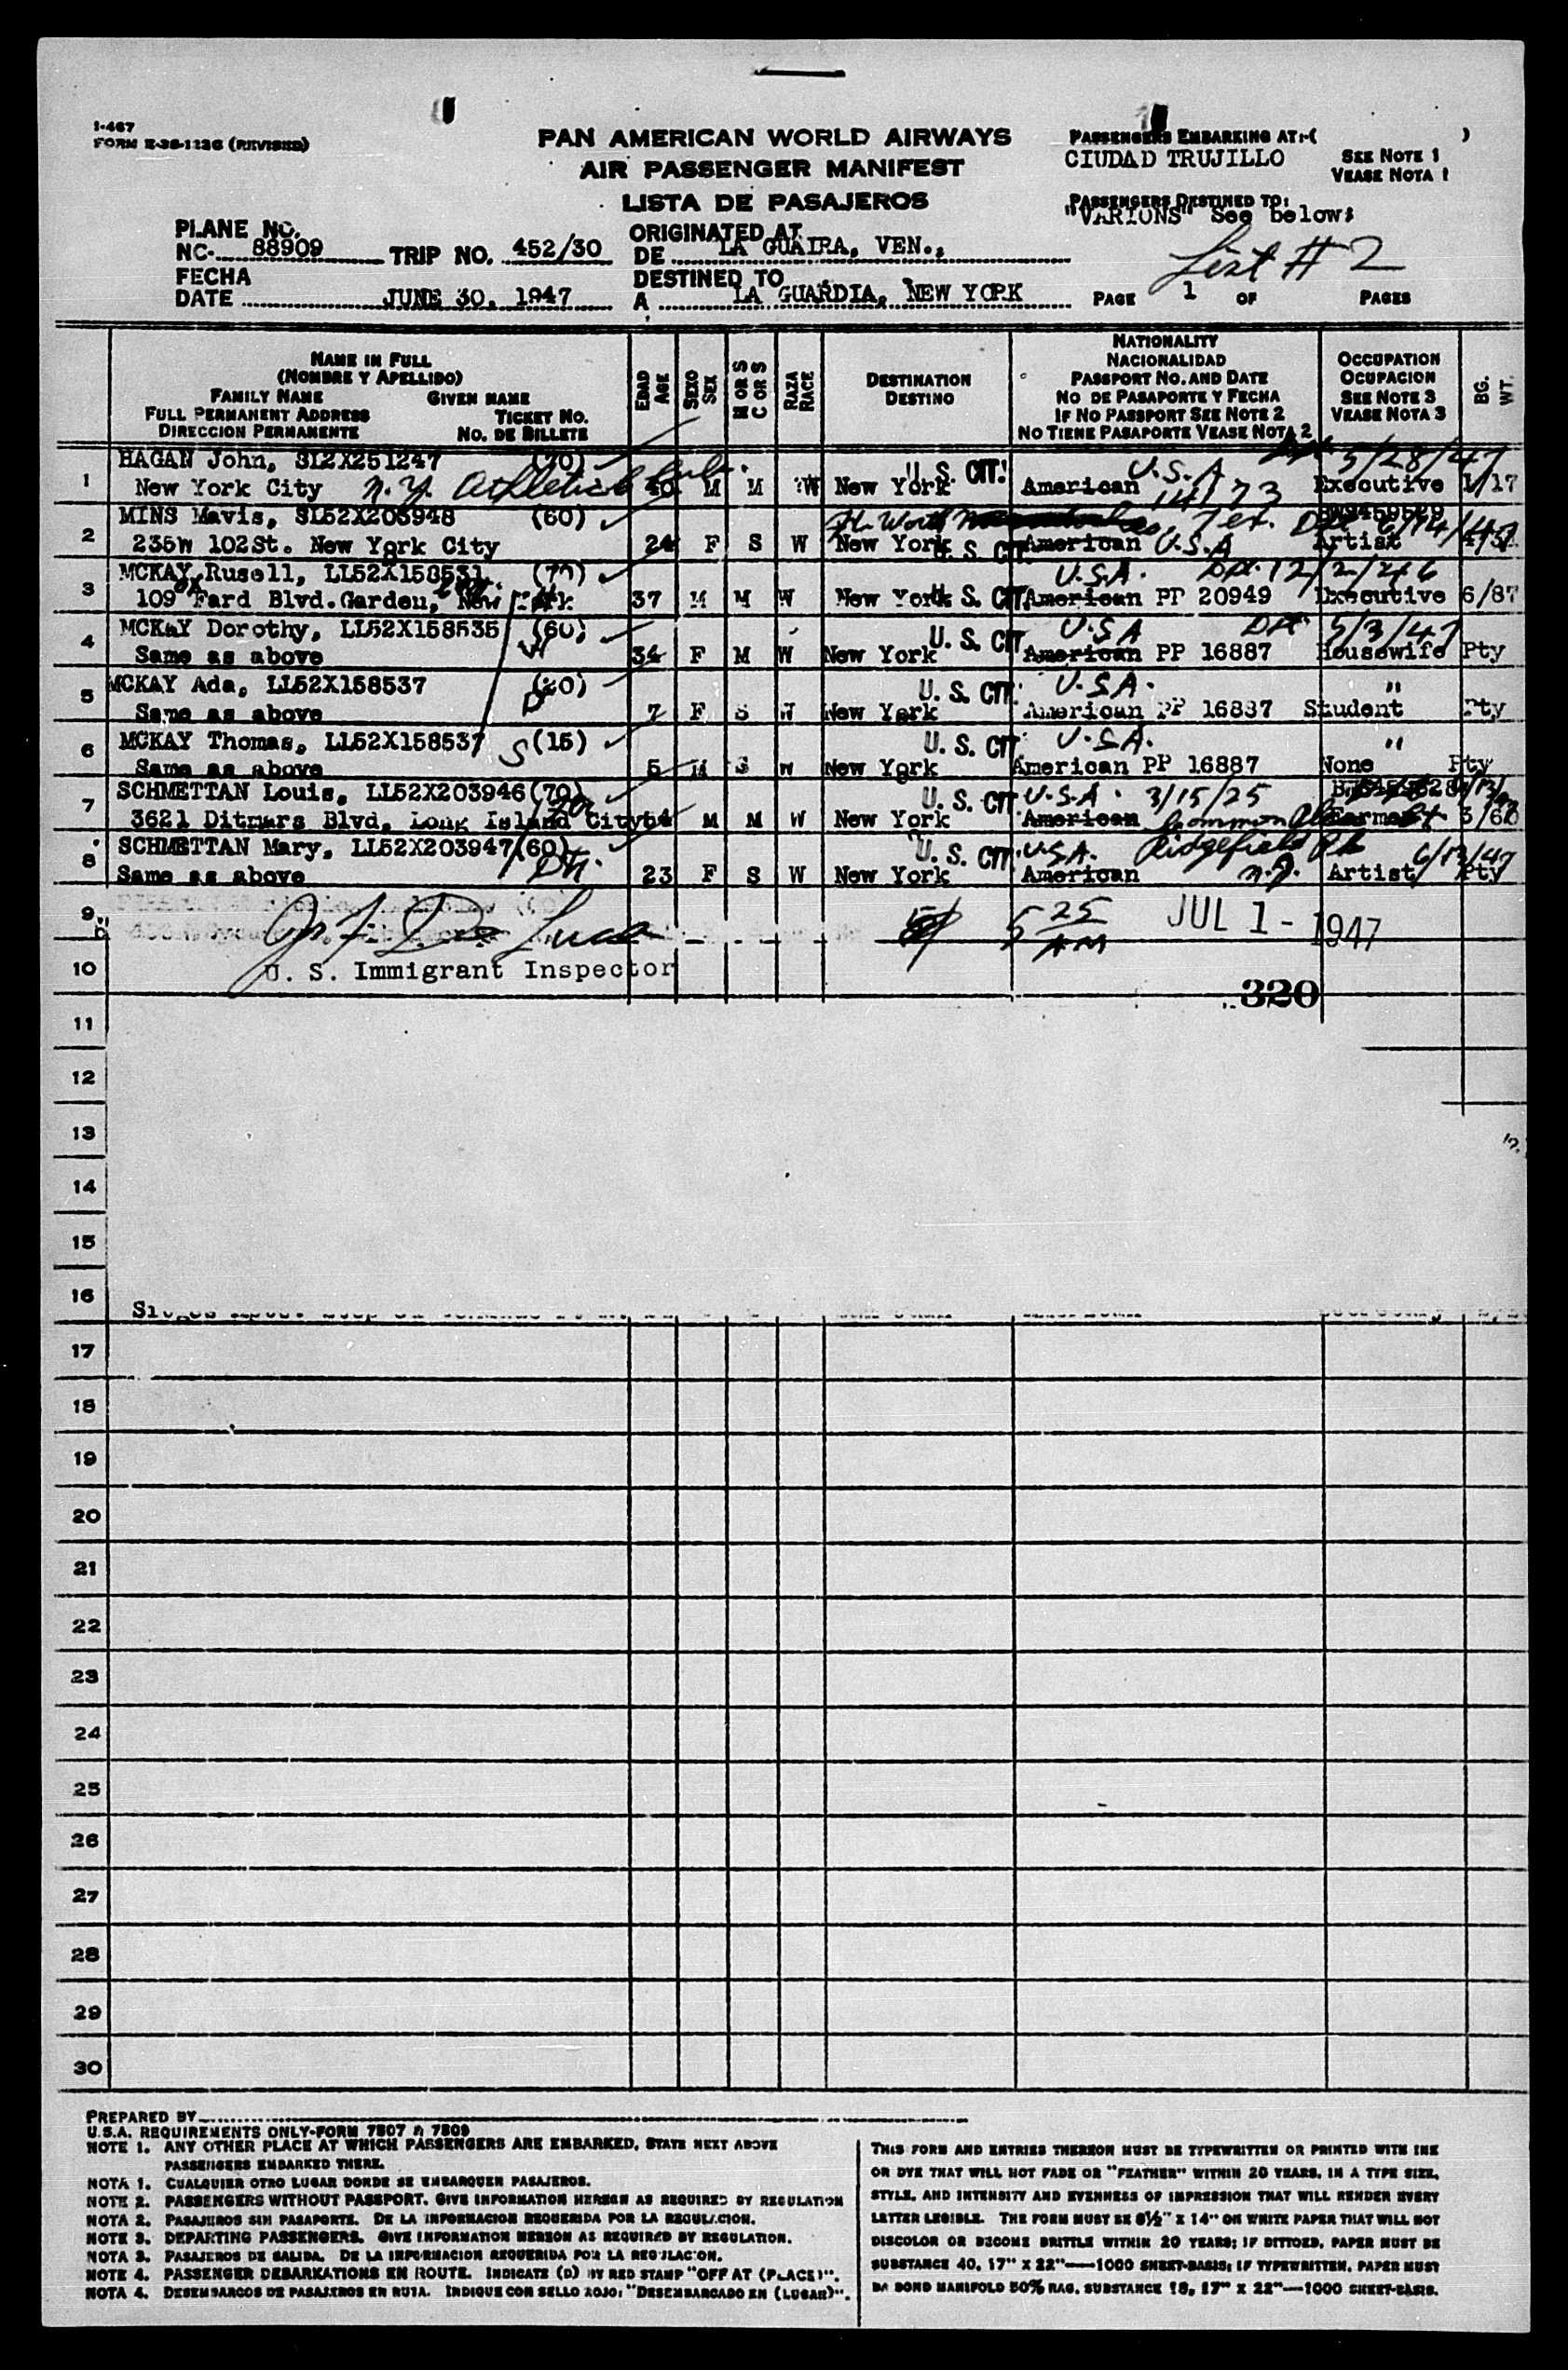 I-467
FORM E-36-1226 (REVISED)
PAN AMERICAN WORLD AIRWAYS
AIR PASSENGER MANIFEST
LISTA DE PASAJEROS
PASSENGERS EMBARKING AT:-( )
CIUDAD TRUJILLO
SEE NOTE 1
VEASE NOTA 1
PASSENGERS DESTINED TO:
"VARIONS" See below:
List # 2
PLANE NO.
NC. 88909 TRIP NO. 452/30
ORIGINATED AT
DE LA GUAIRA, VEN.,
FECHA
DATE JUNE 30, 1947
DESTINED TO
A LA GUARDIA, NEW YORK
PAGE 1 OF PAGES
NAME IN FULL
(NOMBRE Y APELLIDO)
FAMILY NAME GIVEN NAME
FULL PERMANENT ADDRESS TICKET NO.
DIRECCION PERMANENTE NO. DE BILLETE
EDAD AGE
SEXO SEX
M OR S
C OR S
RAZA RACE
DESTINATION
DESTINO
NATIONALITY
NACIONALIDAD
PASSPORT NO. AND DATE
NO DE PASAPORTE Y FECHA
IF NO PASSPORT SEE NOTE 2
NO TIENE PASAPORTE VEASE NOTA 2
OCCUPATION
OCUPACION
SEE NOTE 3
VEASE NOTA 3
BG. WT.
1 HAGAN John, SL2X251247 (70) U. S. CIT. U.S.A 5/28/47
New York City N.Y. Athletic Club. 40 M M W New York American 14173 Executive 1/17
2 MINS Mavis, SL52X203948 (60) Ft. Worth Tex. 6/14/47
235W 102St. New York City 24 F S W New York U. S. CIT American U.S.A Artist
3 MCKAY Rusell, LL52X158531 (70) U.S.A. 12/2/46
109 Fard Blvd.Garden, New York 37 M M W New York U. S. CIT. American PP 20949 Executive 6/87
4 MCKAY Dorothy, LL52X158535 (60) W U. S. CIT U.S.A 5/3/47
Same as above 34 F M W New York American PP 16887 Housewife Pty
5 MCKAY Ada, LL52X158537 (20) D U. S. CIT. U.S.A. "
Same as above 7 F S W New York American PP 16887 Student Pty
6 MCKAY Thomas, LL52X158537 S (15) U. S. CIT U.S.A. "
Same as above 5 M S W New York American PP 16887 None Pty
7 SCHMETTAN Louis, LL52X203946(70) U. S. CIT U.S.A. 3/15/25
3621 Ditmars Blvd, Long Island City 54 M M W New York American Common Pleas 3/60
8 SCHMETTAN Mary, LL52X203947(60) U. S. CIT. U.S.A. Ridgefield Pk 6/13/47
Same as above Dtr. 23 F S W New York American N.J. Artist Pty
9 5 25 AM JUL 1 - 1947
10 U. S. Immigrant Inspector
320
11
12
13
14
15
16
17
18
19
20
21
22
23
24
25
26
27
28
29
30
PREPARED BY
U.S.A. REQUIREMENTS ONLY-FORM 7507 & 7509
NOTE 1. ANY OTHER PLACE AT WHICH PASSENGERS ARE EMBARKED, STATE NEXT ABOVE
PASSENGERS EMBARKED THERE.
NOTA 1. CUALQUIER OTRO LUGAR DONDE SE EMBARQUEN PASAJEROS.
NOTE 2. PASSENGERS WITHOUT PASSPORT. GIVE INFORMATION HEREON AS REQUIRED BY REGULATION
NOTA 2. PASAJEROS SIN PASAPORTE. DE LA INFORMACION REQUERIDA POR LA REGULACION.
NOTE 3. DEPARTING PASSENGERS. GIVE INFORMATION HEREON AS REQUIRED BY REGULATION.
NOTA 3. PASAJEROS DE SALIDA. DE LA INFORMACION REQUERIDA POR LA REGULACION.
NOTE 4. PASSENGER DEBARKATIONS EN ROUTE. INDICATE (D) BY RED STAMP "OFF AT (PLACE)".
NOTA 4. DESEMBARCOS DE PASAJEROS EN RUTA. INDIQUE CON SELLO ROJO: "DESEMBARCADO EN (LUGAR)".
THIS FORM AND ENTRIES THEREON MUST BE TYPEWRITTEN OR PRINTED WITH INK
OR DYE THAT WILL NOT FADE OR "FEATHER" WITHIN 20 YEARS, IN A TYPE SIZE,
STYLE, AND INTENSITY AND EVENNESS OF IMPRESSION THAT WILL RENDER EVERY
LETTER LEGIBLE. THE FORM MUST BE 8½" X 14" ON WHITE PAPER THAT WILL NOT
DISCOLOR OR BECOME BRITTLE WITHIN 20 YEARS; IF DITTOED, PAPER MUST BE
SUBSTANCE 40, 17" X 22"—1000 SHEET-BASIS; IF TYPEWRITTEN, PAPER MUST
BA BOND MANIFOLD 50% RAG, SUBSTANCE 18, 17" X 22"—1000 SHEET-BASIS.